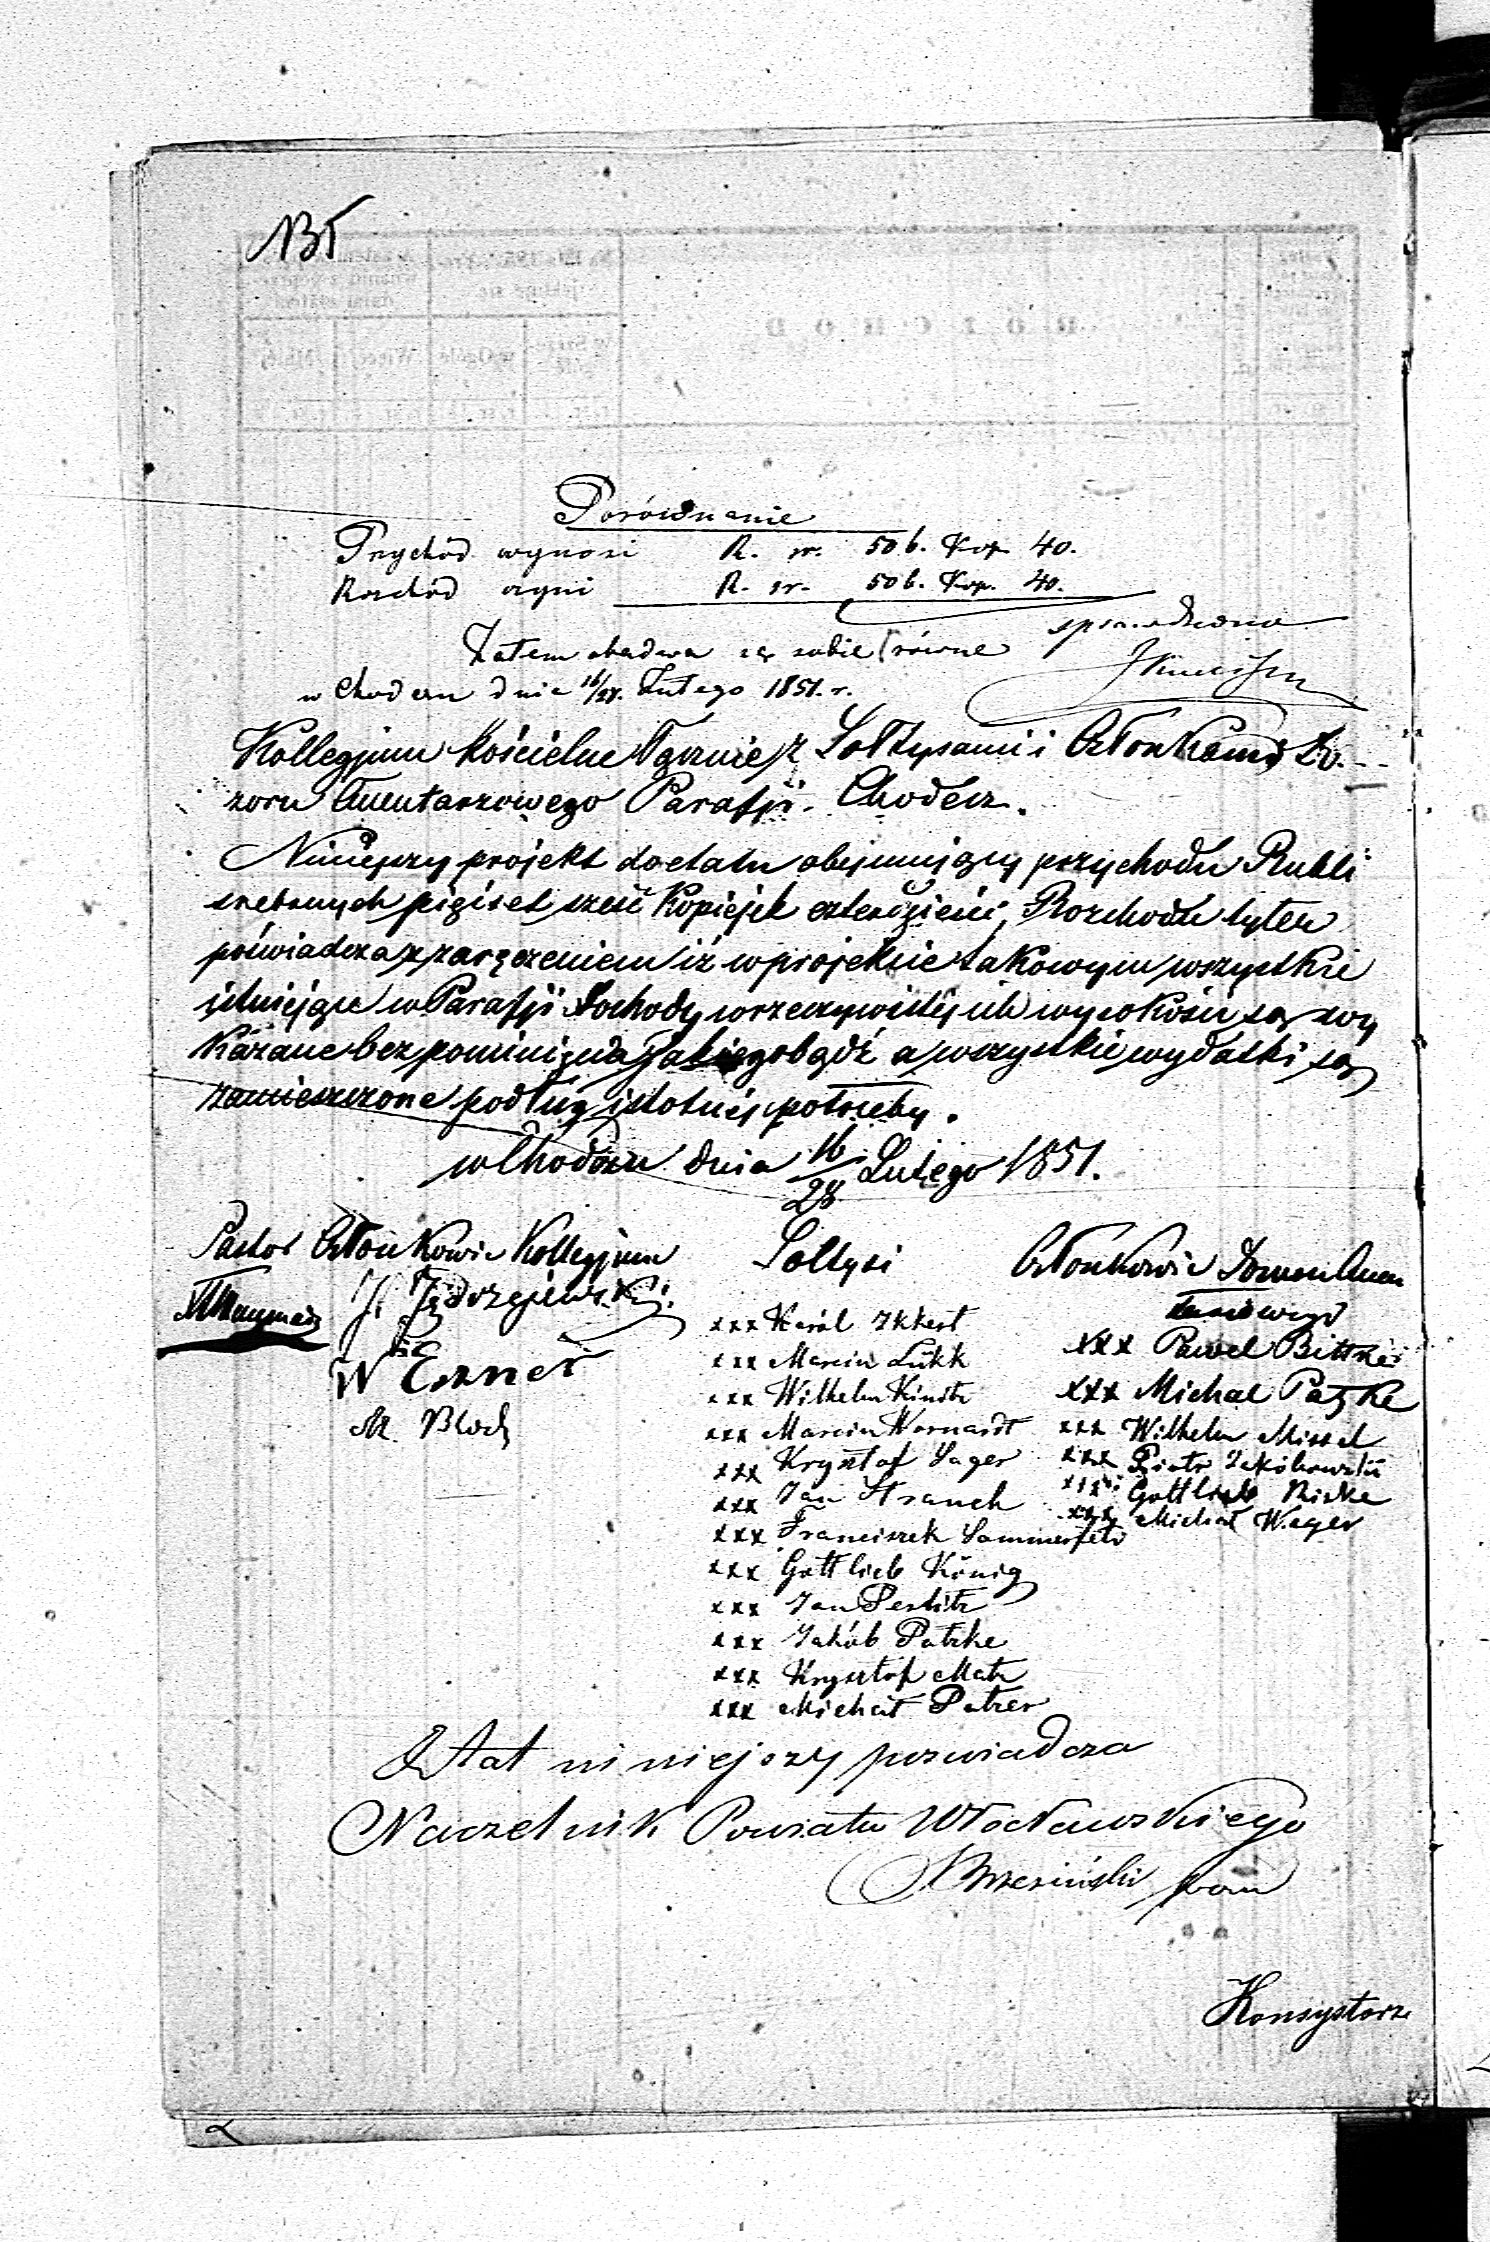 Porównanie
Przychód wynosi R. sr. 506. Kop. 40.
Rozchód czyni R. sr. 506. Kop. 40.
Zatem obadwa są sobie równe
w Chodczu dnia 16/28. Lutego 1851. r.
Kollegjum Kościelne łącznie z Sołtysami i Członkami Do-
zoru Cmentarzowego Parafji Chodecz.
Niniejszy projekt do etatu obejmujący przychodu Rubli
srebrnych pięćset sześć Kopiejek czterdzieści, Rozchodu tyleż
poświadcza z zaręczeniem iż w projekcie takowym wszystkie
istniejące w Parafji dochody w rzeczywistéj ich wysokości są wy
kazane bez pominięcia jakiegobądź a wszystkie wydatki są
zamieszczone podług istotnéj potrzeby.
w Chodczu dnia 16/28 Lutego 1851.
Pastor Członkowie Kollegjum Sołtysi Członkowie Dozoru Cmen
tarzowego
J. Jędrzejewski
W Erner
M. Bloch
xxx Karól Ikkert
xxx Marcin Lükk
xxx Wilhelm Kinitz
xxx Marcin Wornardt
xxx Krysztof Sager
xxx Jan Strauch
xxx Franciszek Sommerfeld
xxx Gottlieb König
xxx Jan Perlitz
xxx Jakób Patzke
xxx Krysztof Matz
xxx Michał Patzer
xxx Paweł Bittner
xxx Michał Patzke
xxx Wilhelm Missal
xxx Piotr Jakóbowski
xxx Gottlieb Riske
xxx Michał Weger
Etat niniejszy poswiadcza
Naczelnik Powiatu Włocławskiego
Konsystorz